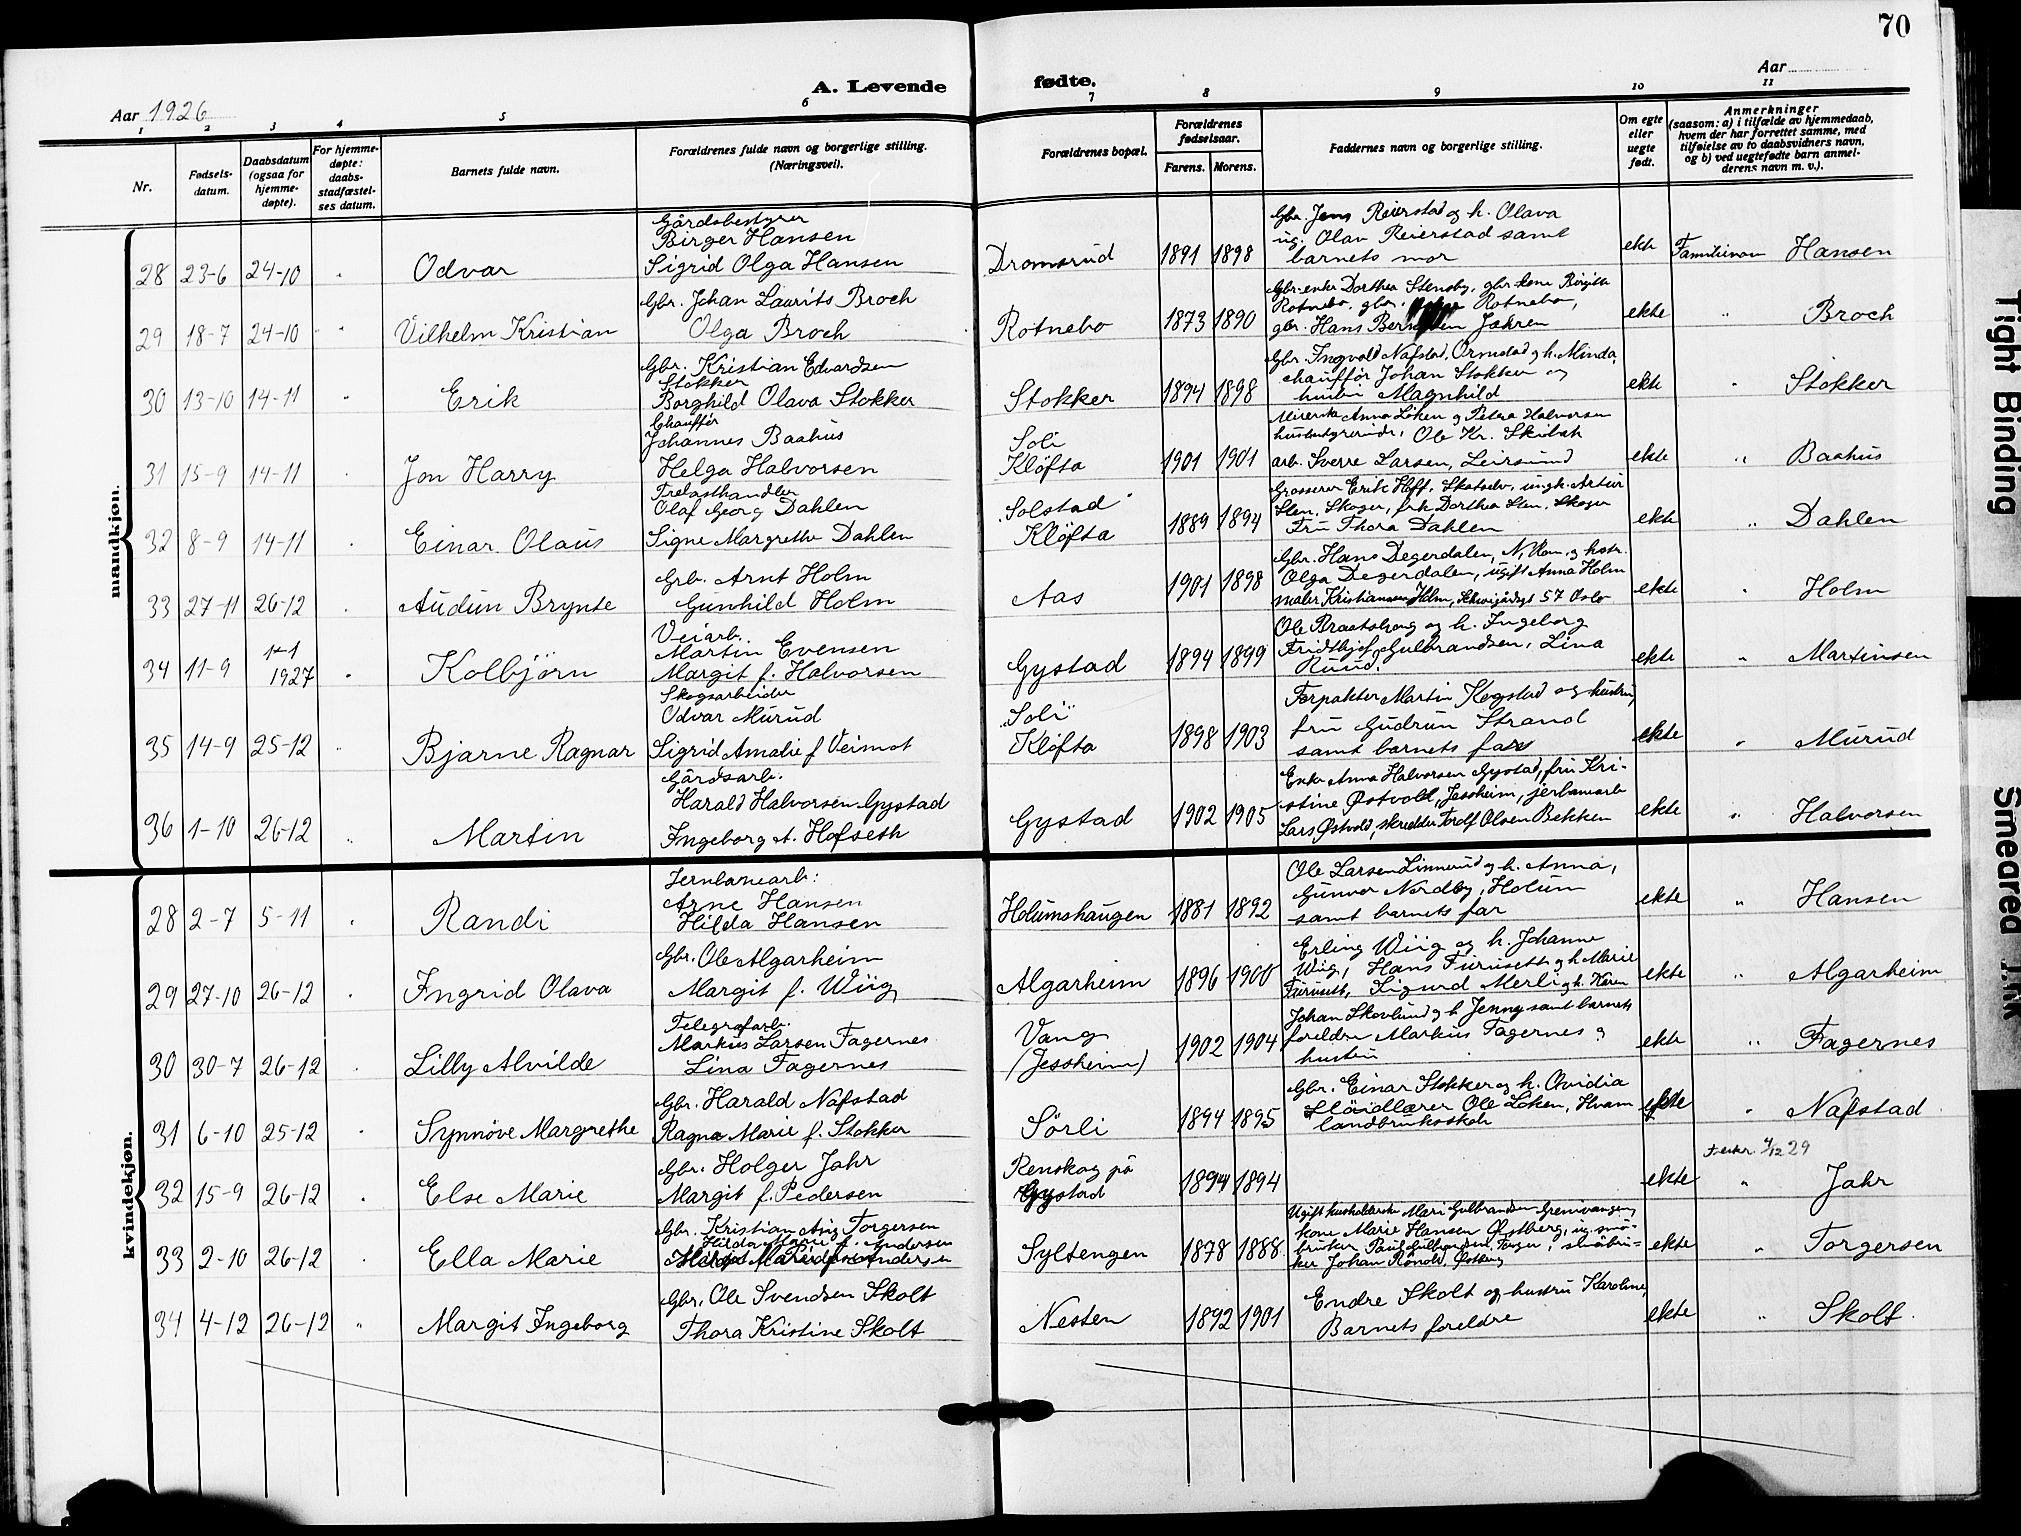 70
A. Levende fødte.
Aar 1926
Aar
1 2 3 4 5 6 7 8 9 10 11
Nr.
Fødselsdatum.
Daabsdatum (ogsaa for hjemmedøpte).
For hjemmedøpte: daabsstadfæstelses datum.
Barnets fulde navn.
Forældrenes fulde navn og borgerlige stilling. (Næringsvei).
Forældrenes bopæl.
Forældrenes fødselsaar.
Farens. Morens.
Faddernes navn og borgerlige stilling.
Om egte eller uegte født.
Anmerkninger
(saasom: a) i tilfælde av hjemmedaab,
hvem der har forrettet samme, med
tilføielse av to daabsvidners navn,
og b) ved uegtefødte barn anmel-
derens navn m. v.).
mandkjøn.
28 23-6 24-10 Odvar
Gårdsbestyrer
Birger Hansen
Sigrid Olga Hansen
Dromsrud 1891 1898
Gbr. Jens Reierstad og h. Olava
ug. Olav Reierstad samt
barnets mor
ekte Familienavn Hansen
29 18-7 24-10 Vilhelm Kristian
Gbr. Johan Laurits Broch
Olga Broch
Rotnebo 1873 1890
Gbr. enke Dorthea Stensby, gbr. kone Birgitte
Rotnebo, gbr. Rotnebo,
gbr. Hans Berntsen Jahren
ekte " Broch
30 13-10 14-11 Erik
Gbr. Kristian Edvardsen
Stokker
Borghild Olava Stokker
Stokker 1894 1898
Gbr. Ingvald Nafstad, Ormstad g h. Minda,
chauffør Johan Stokker og
hustru Magnhild
ekte " Stokker
31 15-9 14-11 Jon Harry
Chauffør
Johannes Baahus
Helga Halvorsen
Soli
Kløfta 1901 1901
Meierske Anna Løken og Petra Halvorsen
husbestyrerinde, Ole Kr. Skibak
arb. Sverre Larsen, Leirsund
ekte " Baahus
32 8-9 14-11 Einar Olaus
Trelasthandler
Olaf Georg Dahlen
Signe Margrethe Dahlen
"Solstad"
Kløfta 1889 1894
Grosserer Erik Hoff, Skotselv, ungk. Artur
Sten, Skoger, frk Dorthea Sten, Skoger
Fru Thora Dahlen
ekte " Dahlen
33 27-11 26-12 Audun Brynte
Grb. Arnt Holm
Gunhild Holm
Aas 1901 1898
Gbr. Hans Degerdalen, N. Rom. og hstr.
Olga Degerdalen, ugift Anna Holm
maler Kristiansen Holm, 57 Oslo
ekte " Holm
34 11-9 1-1 1927 Kolbjörn
Veiarb.
Martin Evensen
Margit f. Halvorsen
Gystad 1894 1899
Ole Braatsbjong og h. Ingeborg
Fridthjof Gulbrandsen, Lina
Ruud.
ekte " Martinsen
35 14-9 25-12 Bjarne Ragnar
Skogsarbeider
Odvar Murud
Sigrid Amalie f Veimot
"Soli"
Kløfta 1898 1903
Forpakter Martin Kogstad og hustru,
fru Gudrun Strand
samt barnets far
ekte " Murud
36 1-10 26-12 Martin
Gårdsarb.
Harald Halvorsen Gystad
Ingeborg A. Hofseth
Gystad 1902 1905
Enke Anna Halvorsen Gystad, fru Kri-
stine Østvold, Jessheim, jerbanearb
Lars Østvold, skredder Tordf Olsen Bekken
ekte " Halvorsen
kvindekjøn.
28 2-7 5-11 Randi
Jernbanearb:
Arne Hansen
Hilda Hansen
Holumshaugen 1881 1892
Ole Larsen Linnerud og h. Anna,
Gunvor Nordby, Holum
samt barnets far
ekte " Hansen
29 27-10 26-12 Ingrid Olava
Gbr. Ole Algarheim
Margit f. Wiig
Algarheim 1896 1900
Erling Wiig og h. Johanne
Wiig, Hans Furuseth og h Marie
Furuseth, Sigurd Merli og h. Karen
ekte " Algarheim
30 30-7 26-12 Lilly Alvilde
Telegrafarb.
Markus Larsen Fagernes
Lina Fagernes
Vang
(Jessheim) 1902 1904
Johan Skovlund og h. Jenny samt barnets
foreldre Markus Fagernes og
hustru
ekte " Fagernes
31 6-10 25-12 Synnöve Margrethe
Gbr. Harald Nafstad
Ragna Marie f. Stokker
Sørli 1894 1895
Gbr. Einar Stokker og h. Ovidia
Slöidlærer Ole Løken, Hvam
landbruksskole
ekte " Nafstad
32 15-9 26-12 Else Marie
Gbr. Holger Jahr
Margit f. Pedersen
Renskog på
Gystad 1894 1894
ekte 4/12 29
" Jahr
33 2-10 26-12 Ella Marie
Gbr. Kristian Aug Torgersen
Hilda Marie f. Andersen
Syltengen 1878 1888
Ugift husholderske Mari Gulbrandsen Grenivangen,
kone Marie Hansen Østberg, ug. små-
bruker Paul Gulbrandsen, , småbru-
ker Johan Rönold, Østberg
ekte " Torgersen
34 4-12 26-12 Margit Ingeborg
Gbr. Ole Svendsen Skolt
Thora Kristine Skolt
Nesten 1892 1901
Endre Skolt og hustru Karoline
Barnets foreldre
ekte " Skolt.
Tight Binding
Smeared Ink